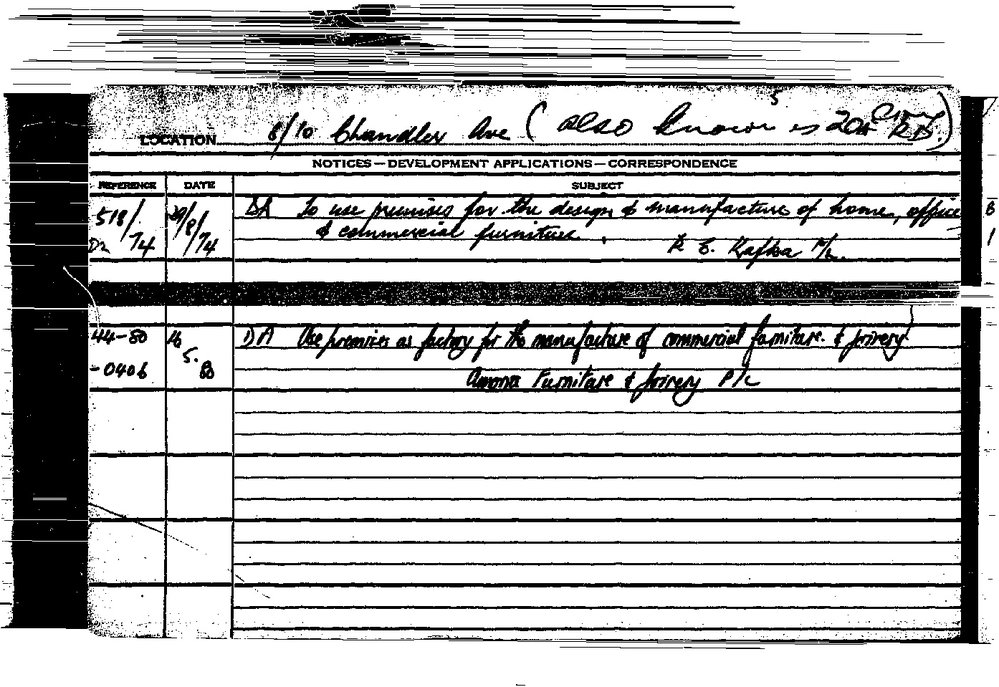 LOCATION 8/10 Chandler Ave (also known as 20A RD.)
NOTICES — DEVELOPMENT APPLICATIONS — CORRESPONDENCE
REFERENCE DATE SUBJECT
518/ 29/8/74 DA To use premises for the design & manufacture of home, office
74 & commercial furniture.
R. E. Kafka P/L.
44-80 16 DA Use premises as factory for the manufacture of commercial furniture & joinery
-0406 5. 80 Furniture & Joinery P/L